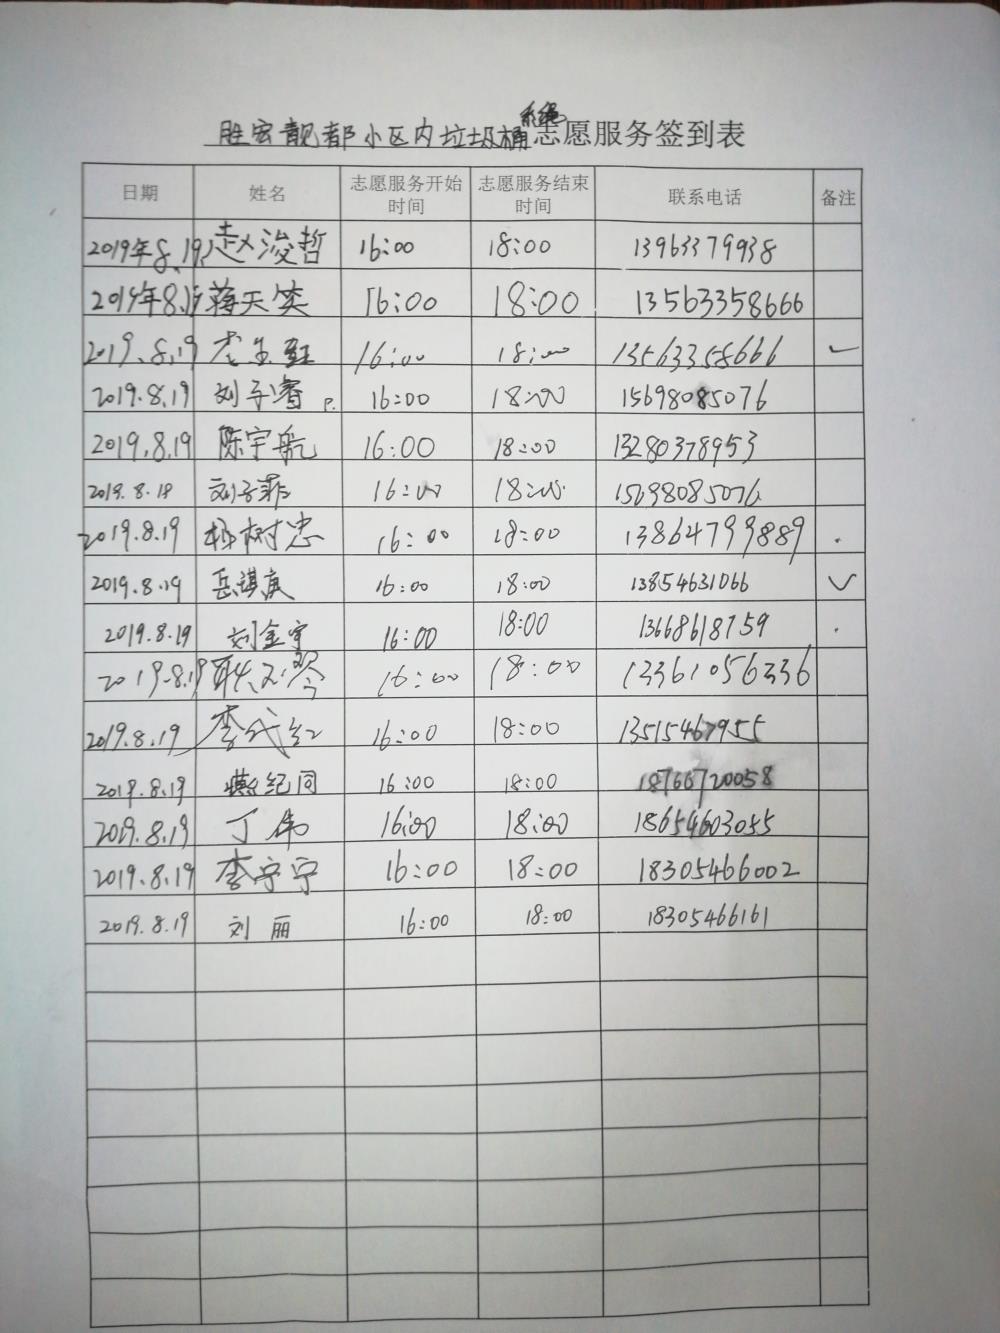 胜宏靓都小区内垃圾桶彩绘志愿服务签到表
日期 姓名 志愿服务开始时间 志愿服务结束时间 联系电话 备注
2019年8.19 赵浚哲 16:00 18:00 13963379938
2019年8.19 蒋天笑 16:00 18:00 13563358666
2019.8.19 16:00 18:00 13563358666 ✓
2019.8.19 刘子睿 16:00 18:00 15698085076
2019.8.19 陈宇航 16:00 18:00 13280378953
2019.8.19 刘子菲 16:00 18:00 15698085076
2019.8.19 杨树忠 16:00 18:00 13864799889
2019.8.19 岳祺庚 16:00 18:00 13854631066 ✓
2019.8.19 刘金宇 16:00 18:00 13668618759
2019.8.19 16:00 18:00 13361056336
2019.8.19 李代红 16:00 18:00 13515467955
2019.8.19 纪同 16:00 18:00 18766720058
2019.8.19 丁伟 16:00 18:00 18654603055
2019.8.19 李宁宁 16:00 18:00 18305466002
2019.8.19 刘丽 16:00 18:00 18305466161